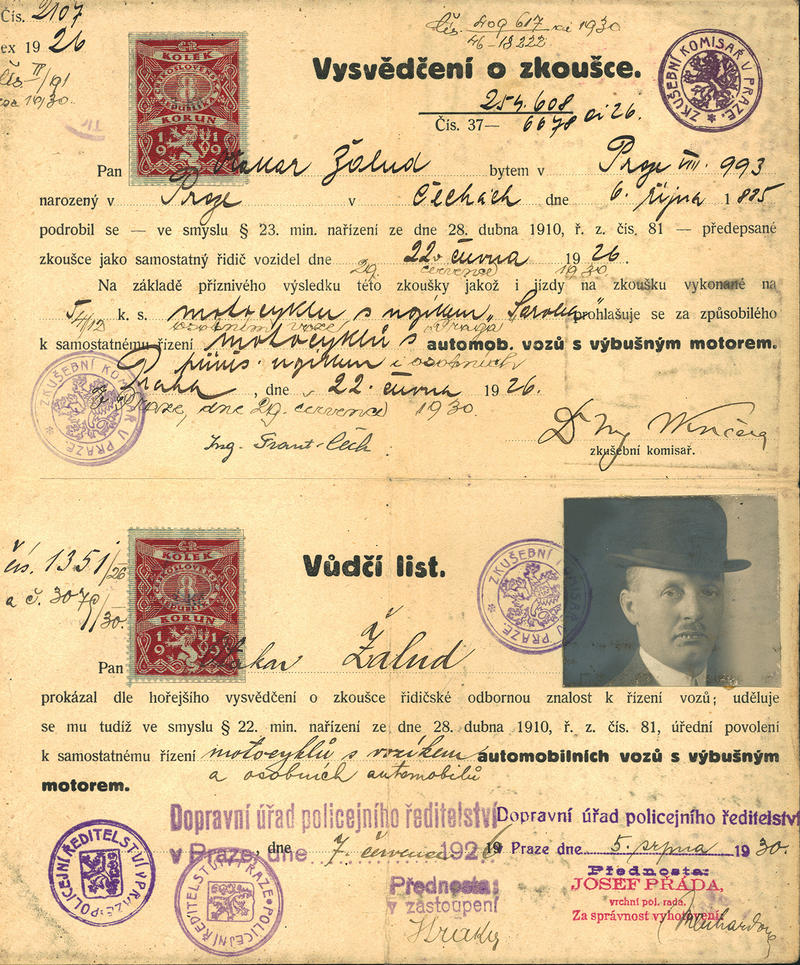 Čís. 2107
ex 1926
Čís. 409 617 1930
46-18222
Vysvědčení o zkoušce.
ZKUŠEBNÍ KOMISAŘ V PRAZE.
254.608
Čís. 37— 6678 ai 26.
KOLEK
ČESKOSLOVENSKÁ
REPUBLIKA
8
KORUN
1919
Pan Otakar Žalud bytem v Praze VIII. 993
narozený v Praze v Čechách dne 6. října 1885
podrobil se — ve smyslu § 23. min. nařízení ze dne 28. dubna 1910, ř. z. čís. 81 — předepsané
zkoušce jako samostatný řidič vozidel dne 22. června 1926.
29. července 1930
Na základě příznivého výsledku této zkoušky jakož i jízdy na zkoušku vykonané na
5 k. s. motocyklu s vozíkem „Sarolea“ prohlašuje se za způsobilého
4/12 osobním voze Praga
k samostatnému řízení motocyklů s automob. vozů s výbušným motorem.
vozíkem i osobních
Praha, dne 22. června 1926.
V Praze, dne 29. července 1930.
ZKUŠEBNÍ KOMISAŘ V PRAZE.
Ing. Frant. Čech
zkušební komisař.
čís. 1351/26
a č. 3070
30.
KOLEK
ČESKOSLOVENSKÁ
REPUBLIKA
8
KORUN
1919
Vůdčí list.
ZKUŠEBNÍ KOMISAŘ V PRAZE.
Pan Otakar Žalud
prokázal dle hořejšího vysvědčení o zkoušce řidičské odbornou znalost k řízení vozů; uděluje
se mu tudíž ve smyslu § 22. min. nařízení ze dne 28. dubna 1910, ř. z. čís. 81, úřední povolení
k samostatnému řízení motocyklů s vozíkem automobilních vozů s výbušným
a osobních automobilů
motorem.
Dopravní úřad policejního ředitelství
v Praze, dne 7. července 1926
Přednosta:
v zastoupení
Dopravní úřad policejního ředitelství
19 Praze dne 5. srpna 1930.
Přednosta:
JOSEF PRÁDA,
vrchní pol. rada.
Za správnost vyhotovení:
POLICEJNÍ ŘEDITELSTVÍ V PRAZE
POLICEJNÍ ŘEDITELSTVÍ V PRAZE